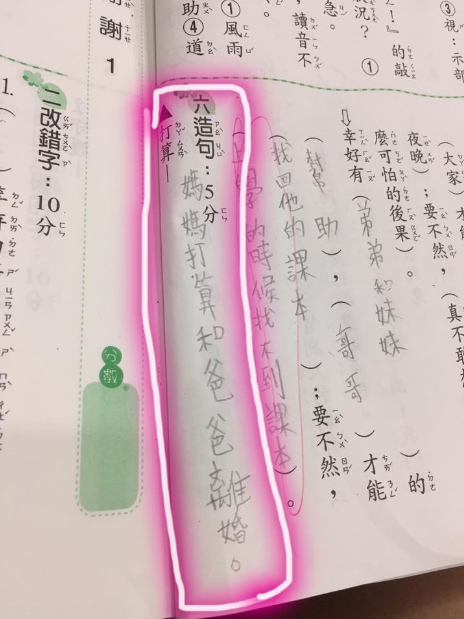 ③視：示部
！』的敲
況？①
急。
，讀音不
①風雨
助④道
(大家)才能
夜晚)；要不然，(真不敢
麼可怕的後果)。
⇩
幸好有(弟弟和妹妹)的
(幫助)，(哥哥)才能
(找回他的課本)；要不然，
(上學的時候找不到課本)。
六造句：5分
▲打算—
媽媽打算和爸爸離婚。
謝謝1
分數
二改錯字：10分
1.